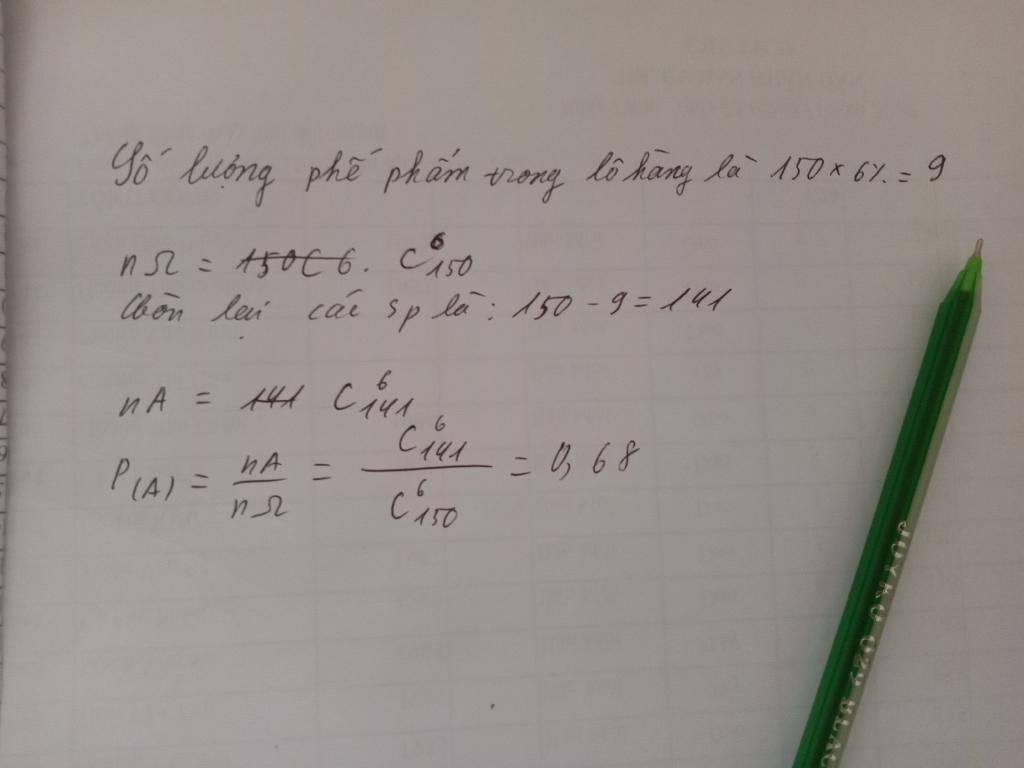 Số lượng phế phẩm trong lô hàng là 150 × 6% = 9
nΩ = 150C6. C⁶₁₅₀
Còn lại các sp là: 150 - 9 = 141
nA = 141 C⁶₁₄₁
P(A) = nA/nΩ = C⁶₁₄₁/C⁶₁₅₀ = 0,68